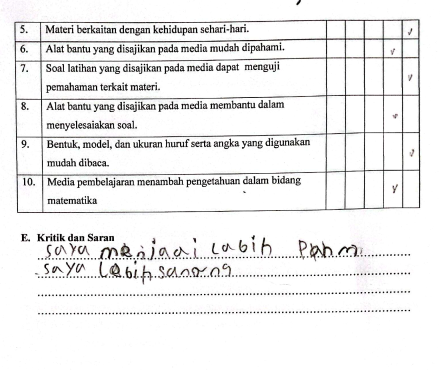 5. Materi berkaitan dengan kehidupan sehari-hari. √
6. Alat bantu yang disajikan pada media mudah dipahami. √
7. Soal latihan yang disajikan pada media dapat menguji √
pemahaman terkait materi.
8. Alat bantu yang disajikan pada media membantu dalam √
menyelesaiakan soal.
9. Bentuk, model, dan ukuran huruf serta angka yang digunakan √
mudah dibaca.
10. Media pembelajaran menambah pengetahuan dalam bidang √
matematika
E. Kritik dan Saran
saya menjadi labih
saya Lebih